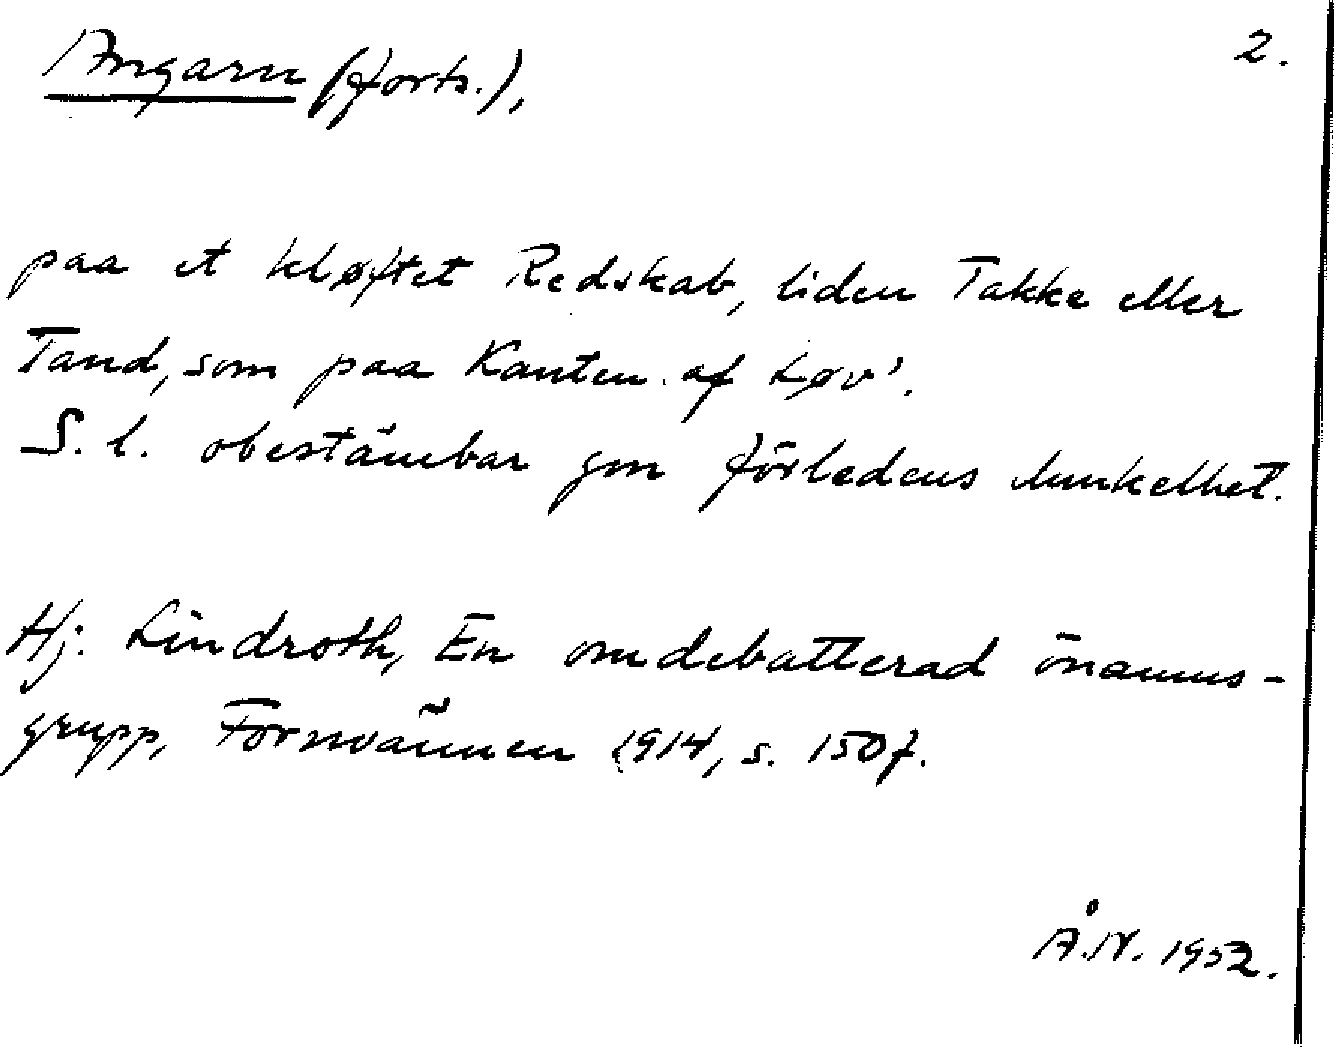 Angarn (forts.), 2.
paa et kløftet Redskab, liden Takke eller
Tand, som paa Kanten af Løv'.
S. l. obestämbar gm förledens dunkelhet.
Hj. Lindroth, En omdebatterad önamns-
grupp, Fornvännen 1914, s. 150 f.
Å.N. 1952.